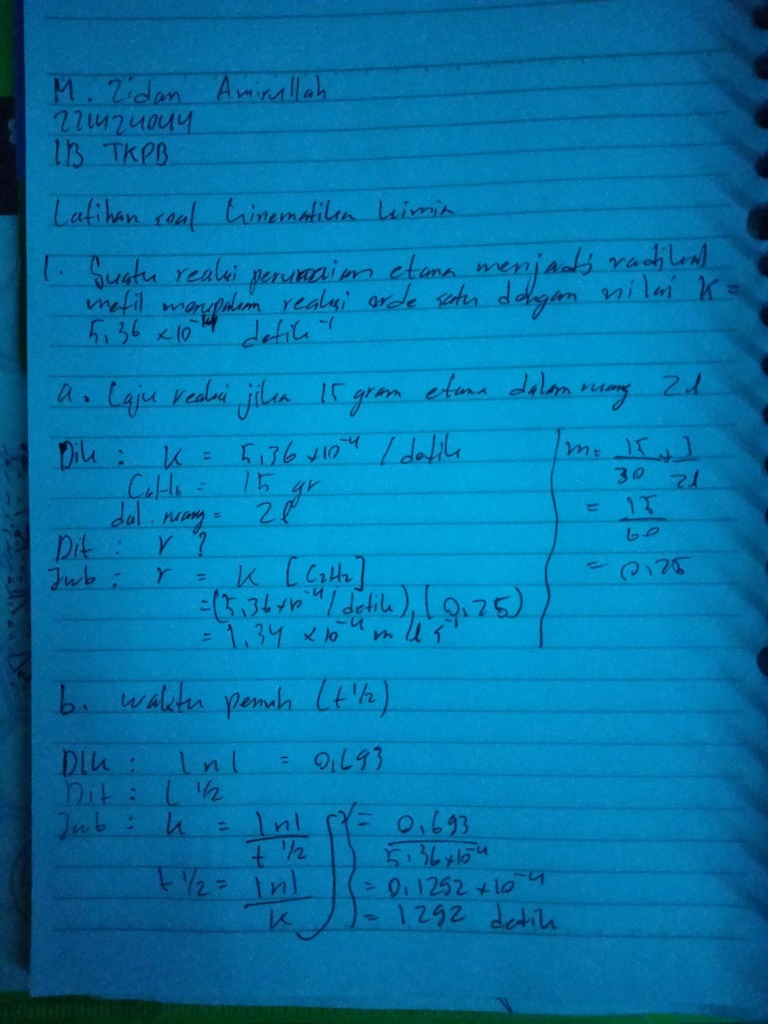 M. Zidan Amirullah
221424044
1B TKPB
Latihan soal kinematika kimia
1. Suatu reaksi peruraian etana menjadi radikal
metil merupakan reaksi orde satu dengan nilai K =
5,36 x10⁻⁴ detik⁻¹
a. Laju reaksi jika 15 gram etana dalam ruang 2l
Dik : K = 5,36 x10⁻⁴ /detik
C2H6 = 15 gr
dal. ruang = 2l
Dit : r ?
Jwb : r = K [C2H2]
= (5,36 x10⁻⁴/detik).(0,25)
= 1,34 x10⁻⁴ m/l s⁻¹
m = 15/30 x 1/2l
= 15/60
= 0,25
b. waktu penuh (t 1/2)
Dik : ln1 = 0,693
Dit : t 1/2
Jwb : k = ln1/t 1/2
t 1/2 = ln1/k
= 0,693/5,36x10⁻⁴
= 0,1292 x10⁻⁴
= 1292 detik